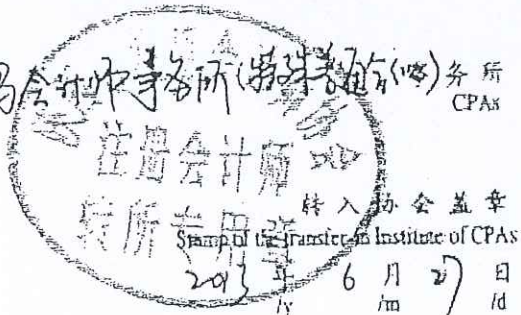 会计师事务所(特殊普通合伙)务所
CPAs
注册会计师
转所专用章
转入协会盖章
Stamp of the transfer-in Institute of CPAs
2013 年 6 月 27 日
/y /m /d